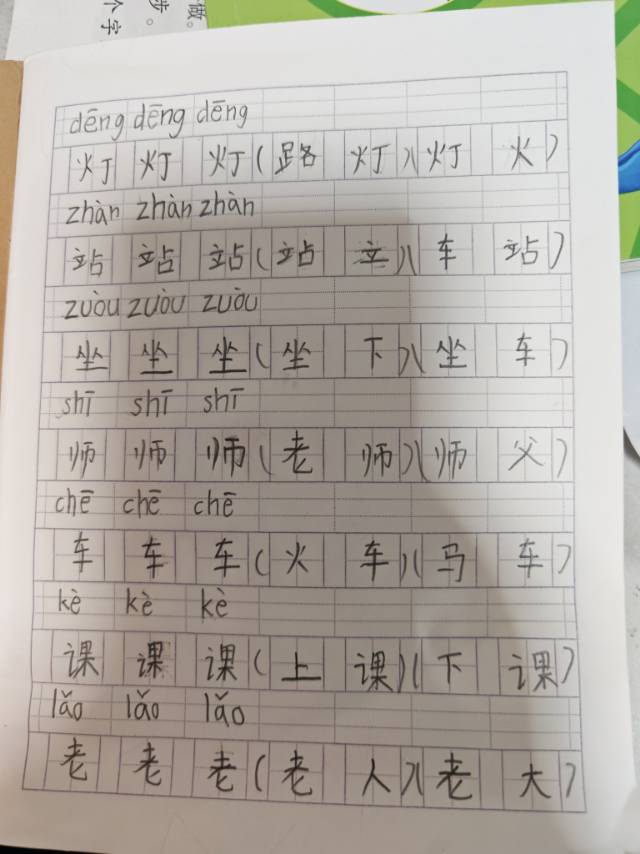 做。
步。
个字
dēng dēng dēng
灯 灯 灯 ( 路 灯 )( 灯 火 )
zhàn zhàn zhàn
站 站 站 ( 站 立 )( 车 站 )
zuòu zuòu zuòu
坐 坐 坐 ( 坐 下 )( 坐 车 )
shī shī shī
师 师 师 ( 老 师 )( 师 父 )
chē chē chē
车 车 车 ( 火 车 )( 马 车 )
kè kè kè
课 课 课 ( 上 课 )( 下 课 )
lǎo lǎo lǎo
老 老 老 ( 老 人 )( 老 大 )